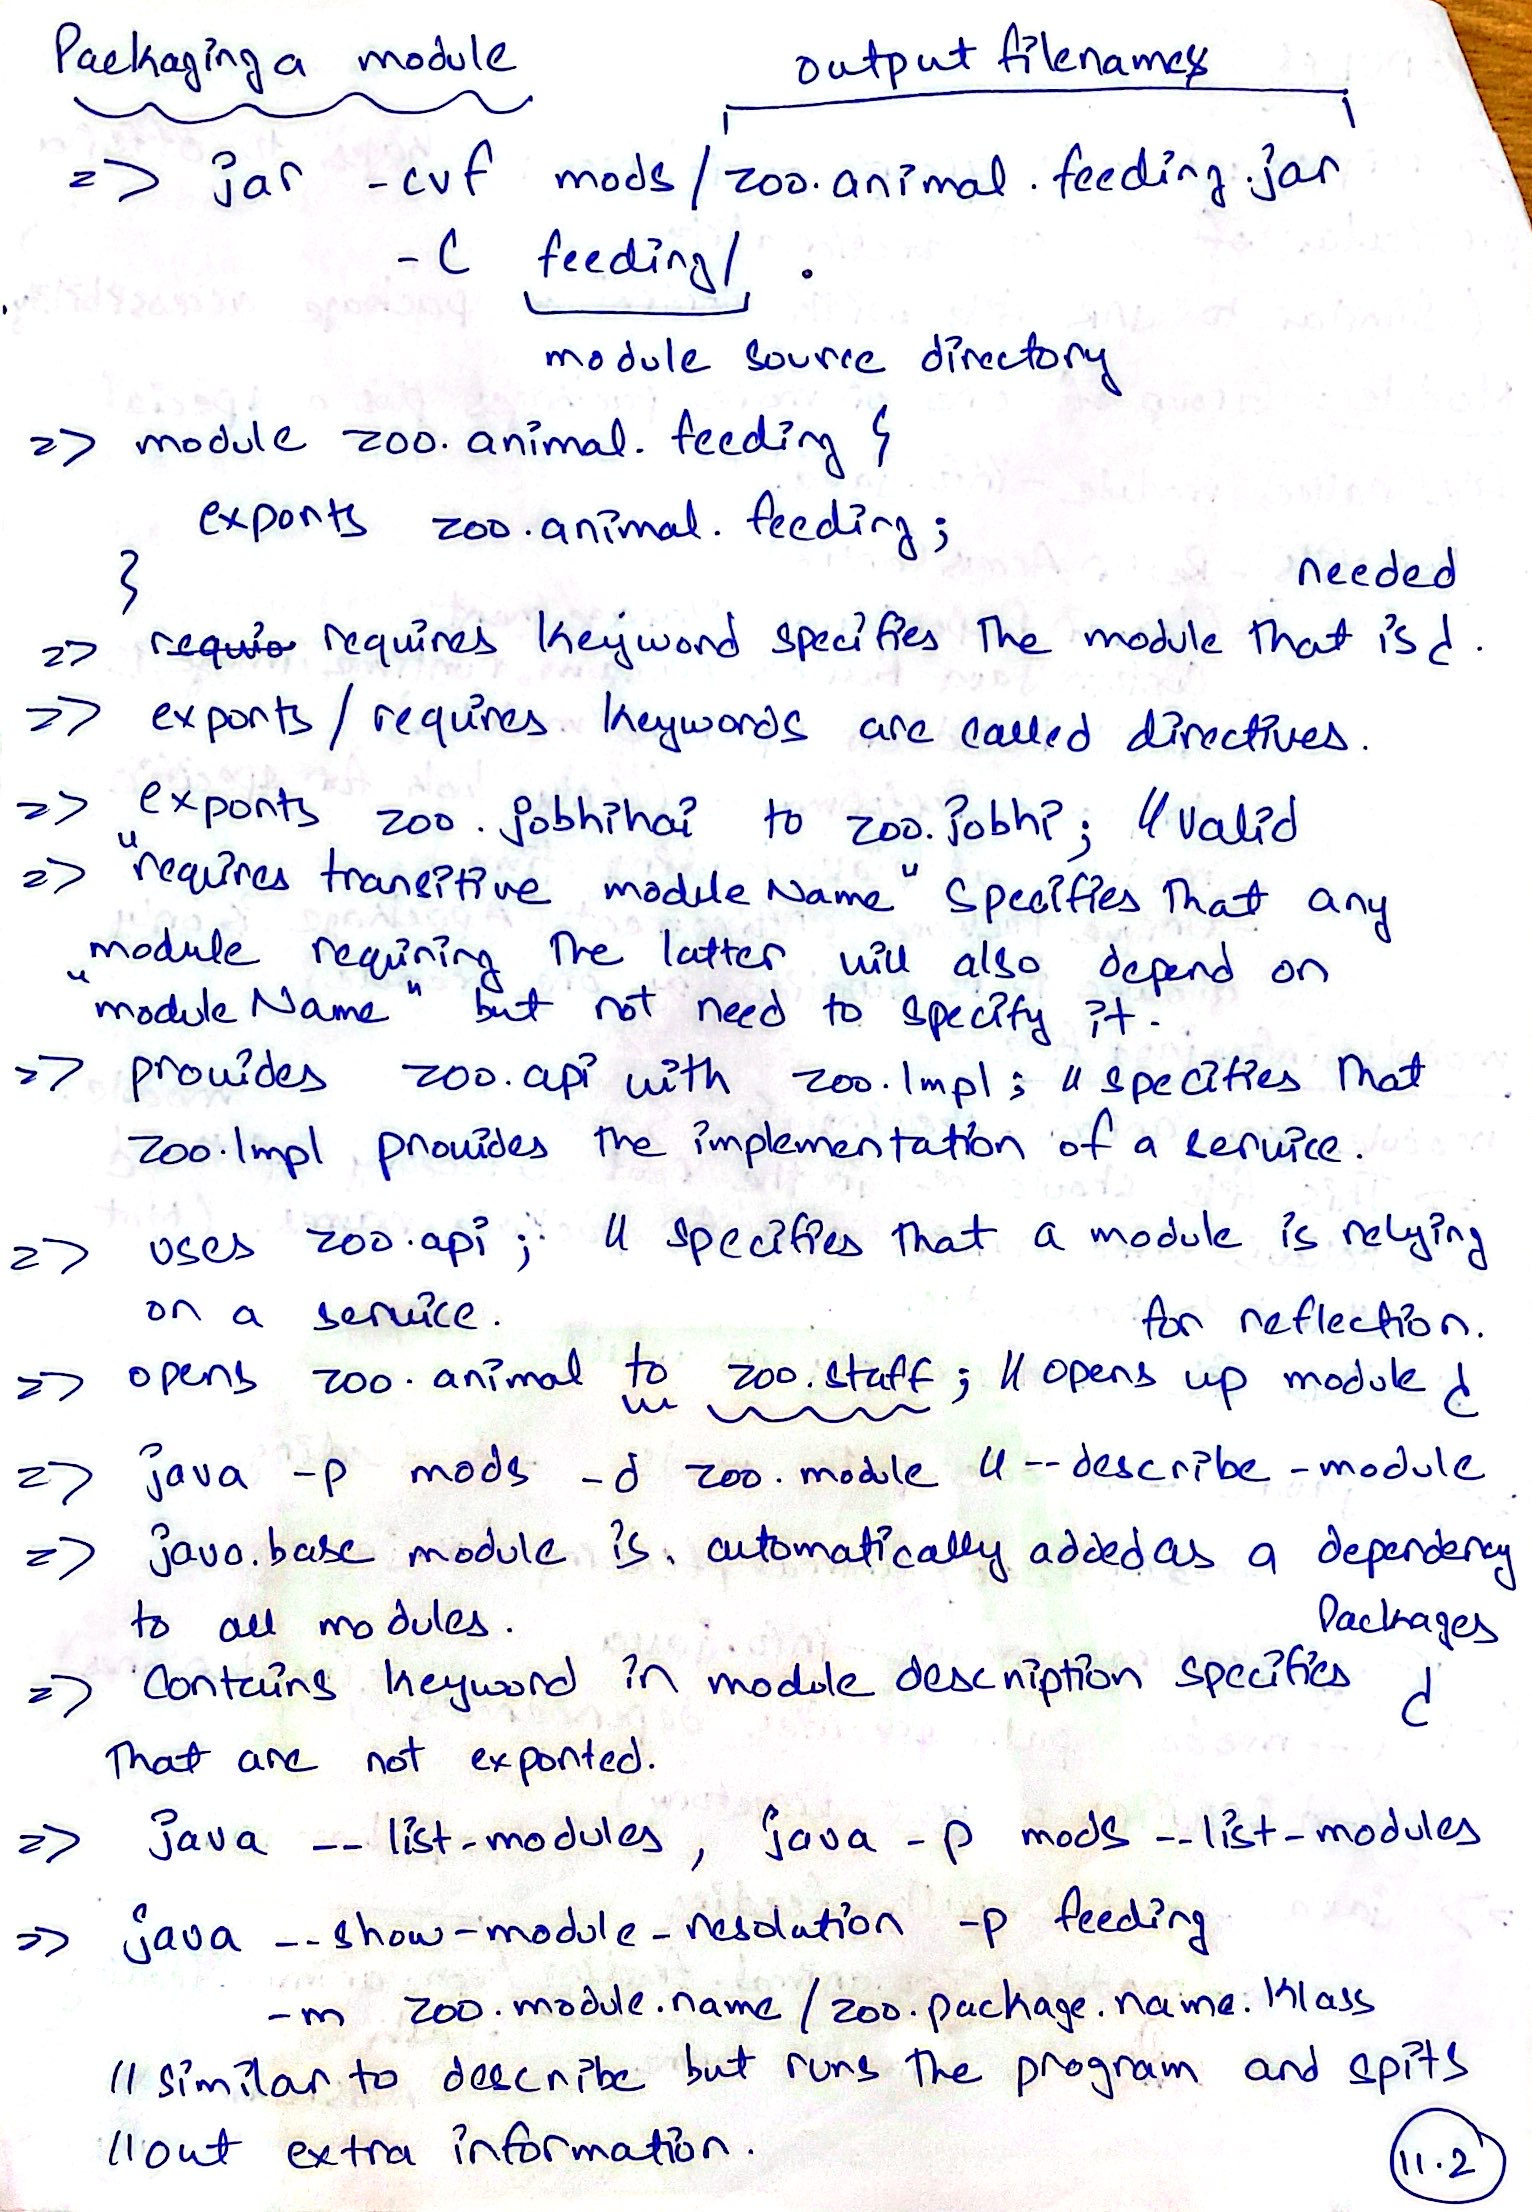 Packaging a module
output filenames
=> jar -cvf mods/zoo.animal.feeding.jar
-C feeding/ .
module source directory
=> module zoo.animal.feeding {
exports zoo.animal.feeding;
}
needed
=> requio requires keyword specifies the module that is .
=> exports/requires keywords are called directives.
=> exports zoo.jobhihai to zoo.jobhi; // valid
=> "requires transitive moduleName" specifies that any
module requiring the latter will also depend on
"moduleName" but not need to specify it.
=> provides zoo.api with zoo.Impl; // specifies that
zoo.Impl provides the implementation of a service.
=> uses zoo.api; // specifies that a module is relying
on a service.
for reflection.
=> opens zoo.animal to zoo.staff; // opens up module
=> java -p mods -d zoo.module // --describe-module
=> java.base module is automatically added as a dependency
to all modules.
Packages
=> Contains keyword in module description specifies
that are not exported.
=> java --list-modules, java -p mods --list-modules
=> java --show-module-resolution -p feeding
-m zoo.module.name/zoo.package.name.Klass
// similar to describe but runs the program and spits
// out extra information.
11.2